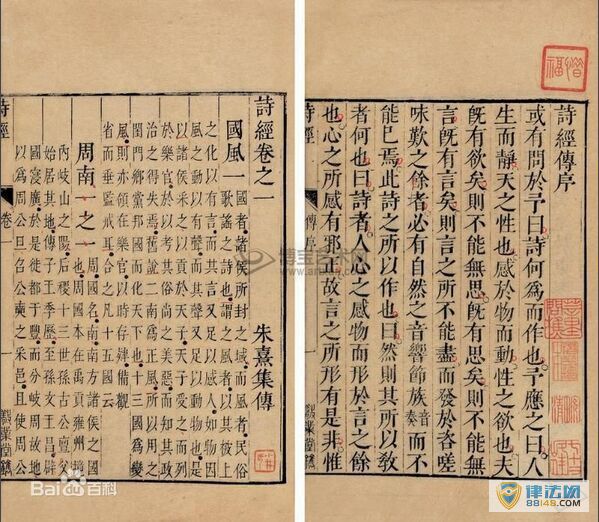 詩經傳序
或有問於予曰詩何爲而作也予應之曰人
生而靜天之性也感於物而動性之欲也夫
既有欲矣則不能無思既有思矣則不能無
言既有言矣則言之所不能盡而發於咨嗟
咏歎之餘者必有自然之音響節族音奏而不
能已焉此詩之所以作也曰然則其所以教
者何也曰詩者人心之感物而形於言之餘
也心之所感有邪正故言之所形有是非惟
詩經 傳序 一
詩經卷之一
朱熹集傳
國風一 國者諸侯所封之域而風者民俗
歌謠之詩也謂之風者以其被上
之化以有言而其言又足以感人如物因
風之動以有聲而其聲又足以動物也是
以諸侯采之以貢於天子天子受之而列
於樂官於以考其俗尚之美惡而知其政
治之得失焉舊說二南爲正風所以用之
閨門鄉黨邦國而化天下也十三國爲變
風則亦領在樂官以時存肄備觀
省而垂監戒耳合之凡十五國云
周南一之一 周國名南南方諸侯之國
也周國本在禹貢雍州境
內岐山之陽后稷十三世孫古公亶父
始居其地傳子王季歷至孫文王昌辟
國寖廣於是徙都于豐而分岐周故地
以爲周公旦召公奭之采邑且使周公
詩經 卷一 一
博宝艺术网
Bai 百科
律法网
88148.COM